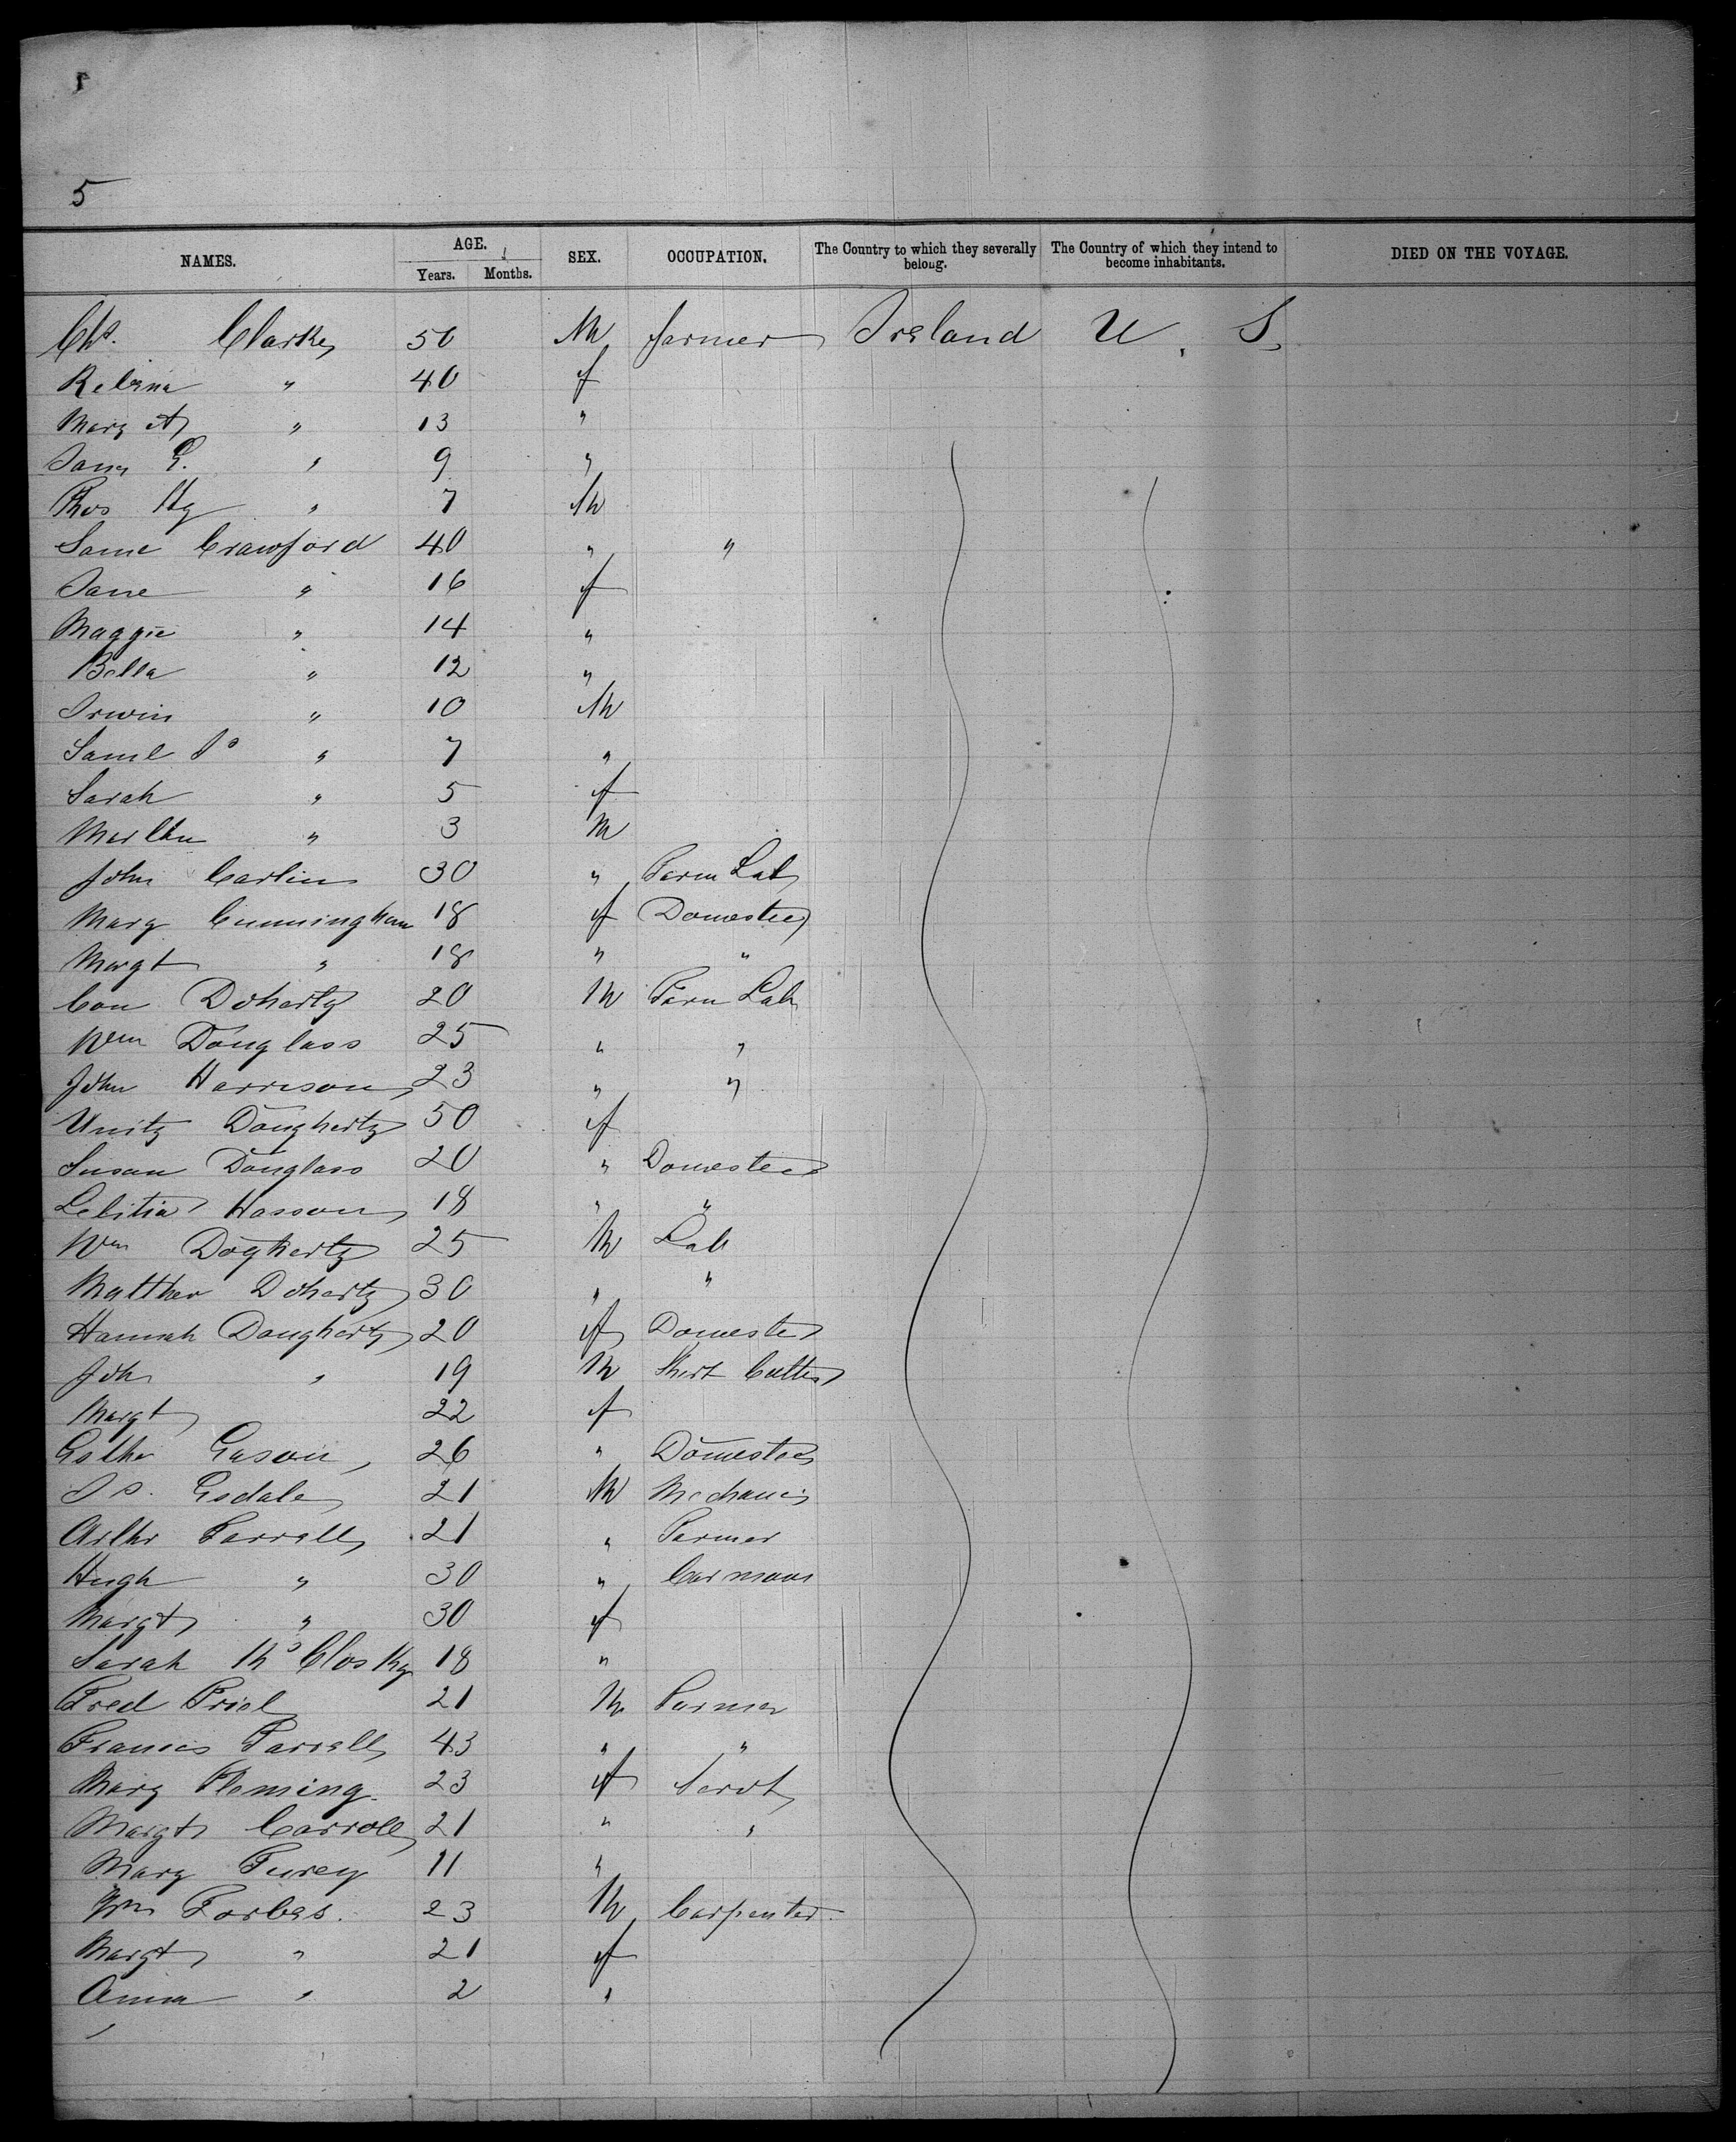 5
NAMES. AGE. Years. Months. SEX. OCCUPATION. The Country to which they severally belong. The Country of which they intend to become inhabitants. DIED ON THE VOYAGE.
Chs. Clarke 50 M farmer Ireland U. S.
Rebina " 40 f
Mary A " 13 "
Jane E. " 9 "
Thos Hy " 7 M
Saml Crawford 40 " "
Jane " 16 f
Maggie " 14 "
Bella " 12 "
Irwin " 10 M
Saml Js " 7 "
Sarah " 5 f
" 3 M
John Carlin 30 " Farm Lab
Mary Cunningham 18 f Domestic
Margt " 18 " "
Con Doherty 20 M Farm Lab
Wm Douglass 25 " "
John Harrison 23 " "
Unity Dougherty 50 f
Susan Douglass 20 " Domestic
Letitia Hasson 18 " "
Wm Dogherty 25 M Lab
Matthew Doherty 30 " "
Hannah Dougherty 20 f Domestic
John " 19 M Shirt Cutter
Margt 22 f
Esther Eason 26 " Domestic
Js. Esdale 21 M Mechanic
Arthr Farrell 21 " Farmer
Hugh " 30 " Carman
Margt " 30 f
Sarah McClosky 18 "
Fred Friel 21 M Farmer
Francis Farrell 43 " "
Mary Fleming 23 f Servt
Margt Carroll 21 " "
Mary Furey 11 "
Wm Forbes. 23 M Carpenter
Margt " 21 f
Anna " 2 "